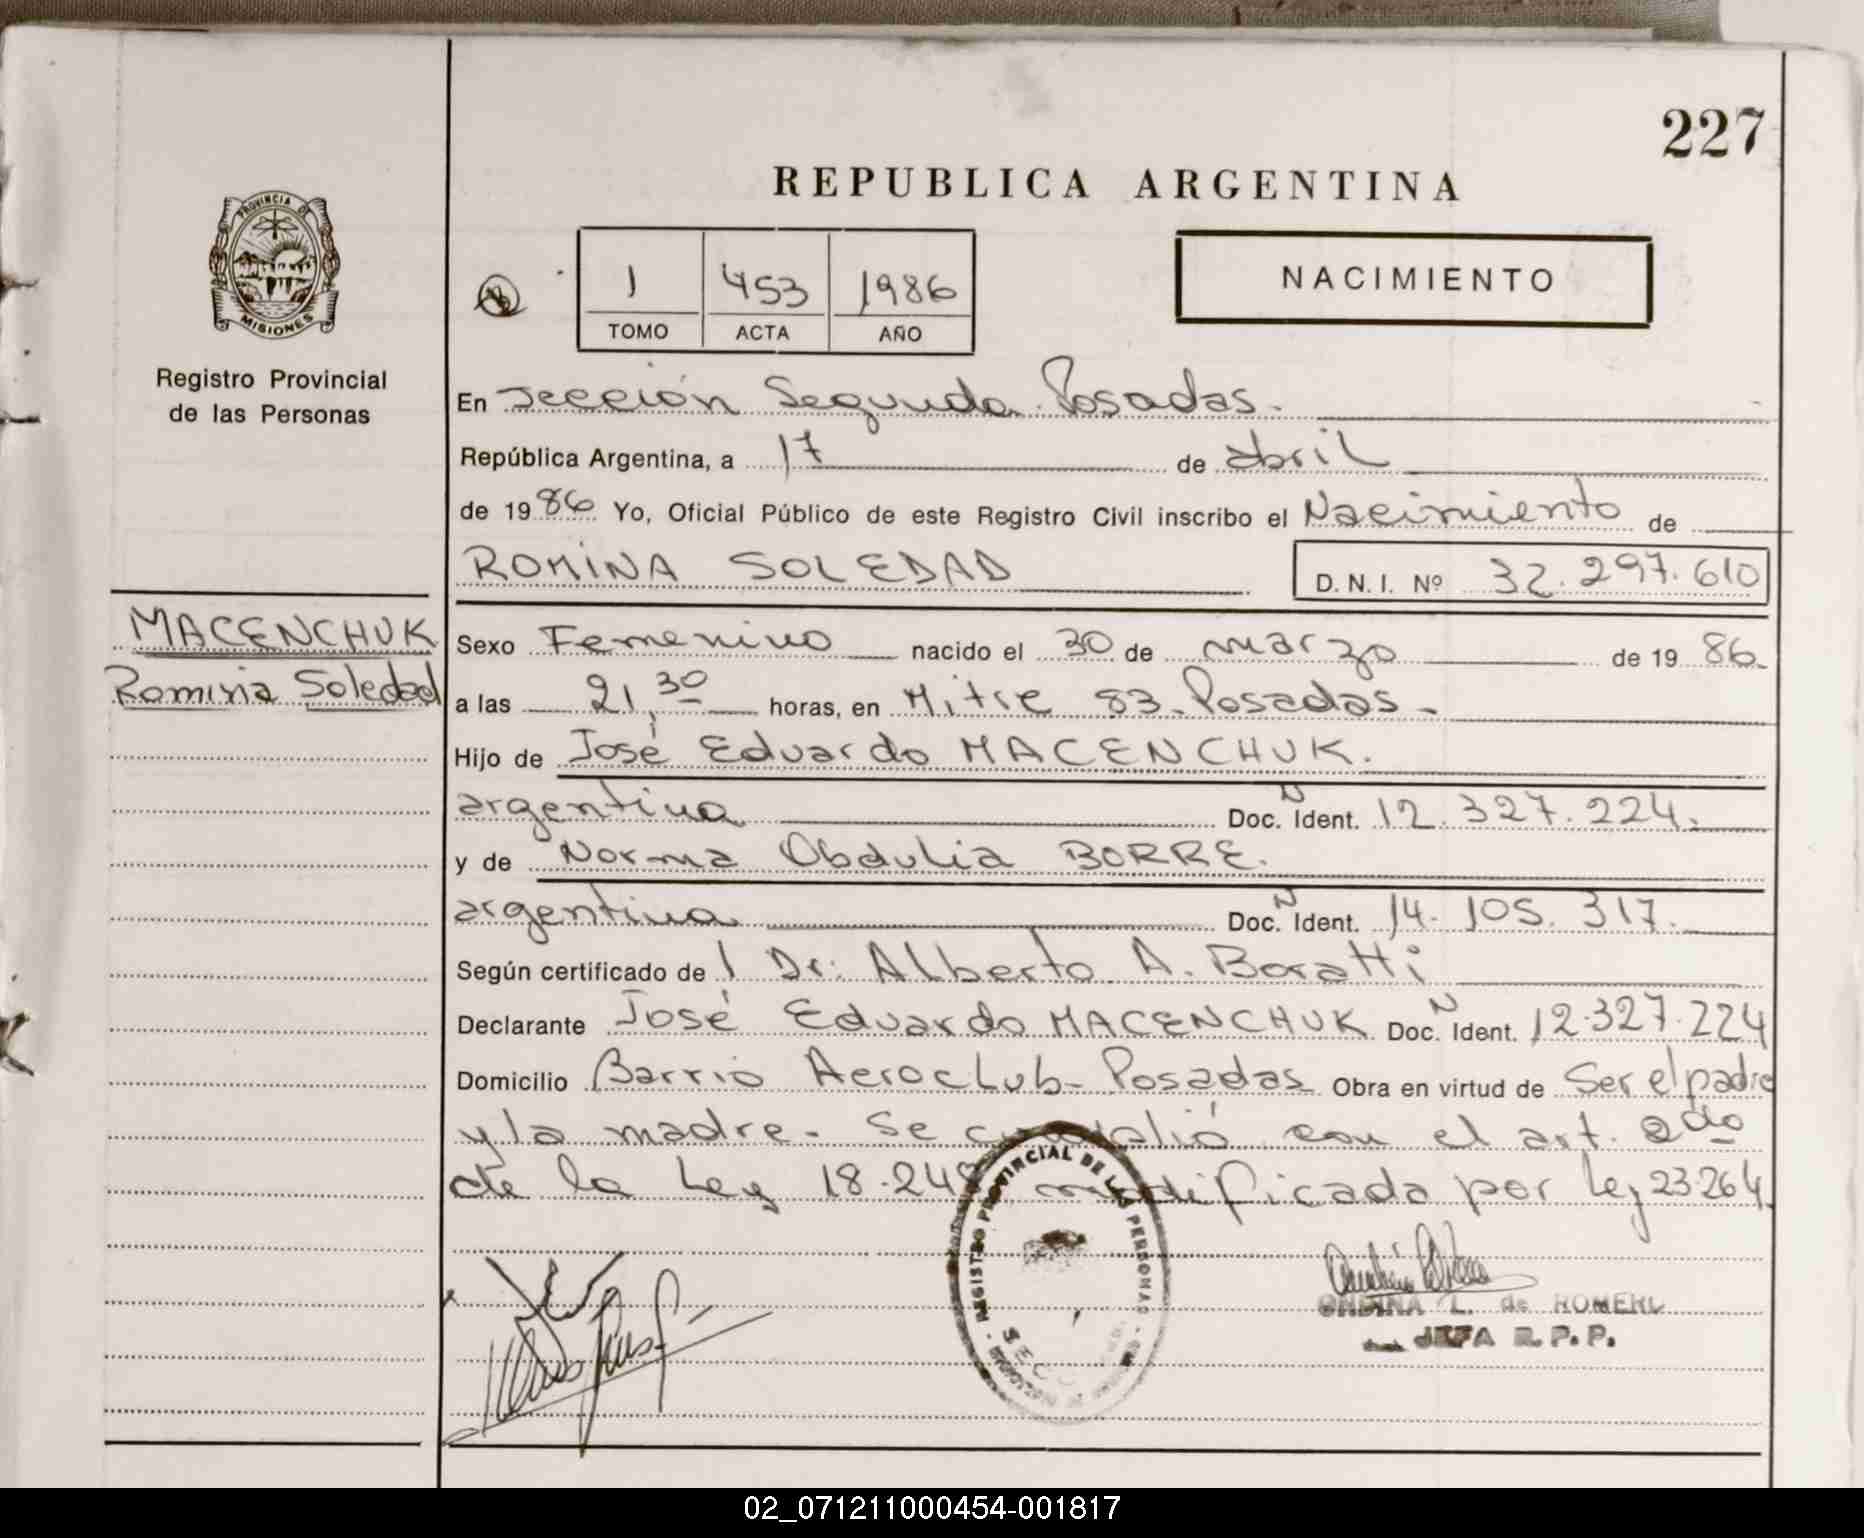 227
REPUBLICA ARGENTINA
PROVINCIA DE
MISIONES
Registro Provincial
de las Personas
1 453 1986
TOMO ACTA AÑO
NACIMIENTO
En Sección Segunda Posadas.
República Argentina, a 17 de abril
de 1986 Yo, Oficial Público de este Registro Civil inscribo el Nacimiento de
ROMINA SOLEDAD D.N.I. Nº 32.297.610
MACENCHUK
Romina Soledad
Sexo Femenino nacido el 30 de marzo de 1986.
a las 21,30 horas, en Mitre 83-Posadas-
Hijo de José Eduardo MACENCHUK.
argentina Doc. N Ident. 12.327.224.
y de Norma Obdulia BORRE.
argentina Doc. N Ident. 14.105.317.
Según certificado de 1 Dr. Alberto A. Boratti
Declarante José Eduardo MACENCHUK Doc. N Ident. 12.327.224
Domicilio Barrio Aeroclub-Posadas Obra en virtud de Ser el padre
y la madre.- Se cumplió con el art. 2do
de la Ley 18.248 modificada por Ley 23.264.
REGISTRO PROVINCIAL DE LAS PERSONAS
ONDINA L. de ROMERO
JEFA R.P.P.
02_071211000454-001817